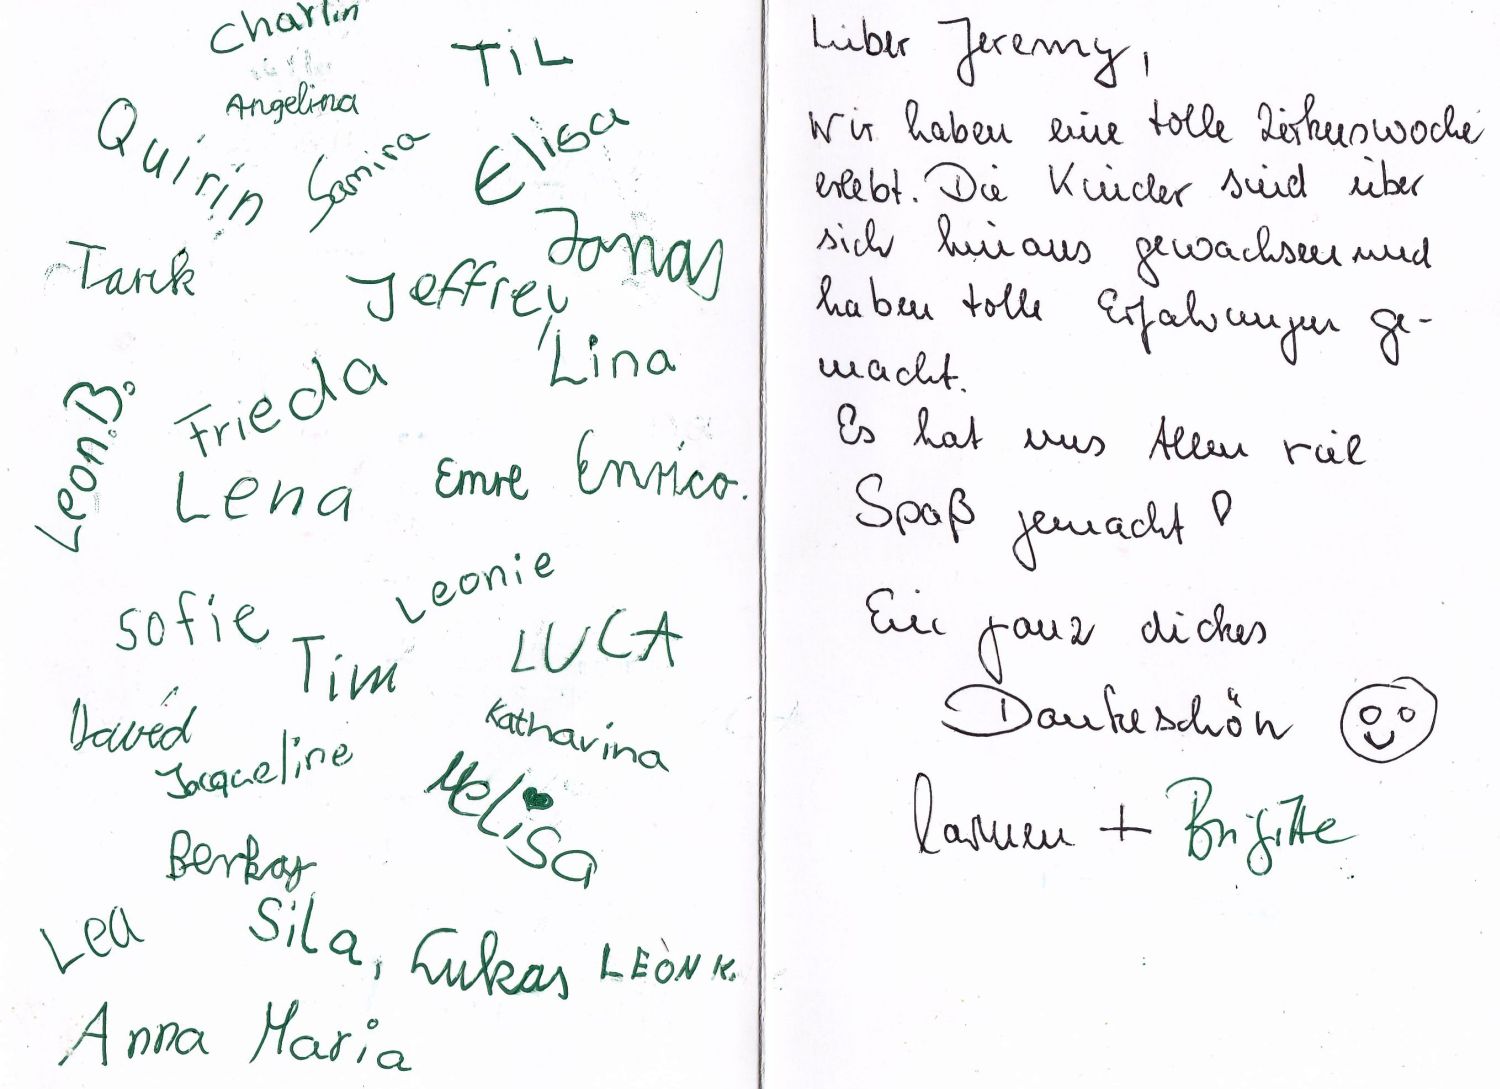 Charlin
TiL
Angelina
Quirin
Samira
Elisa
Jonas
Tarik
Jeffrey
Lina
Frieda
Leon.B.
Lena
Emre
Enrico.
Leonie
Sofie
Tim
LUCA
David
Katharina
Jacqueline
Melisa
Berkay
Lea
Sila,
Lukas
LEÒN K.
Anna Maria
Lieber Jeremy,
Wir haben eine tolle Zirkuswoche
erlebt. Die Kinder sind über
sich hinaus gewachsen und
haben tolle Erfahrungen ge-
macht.
Es hat uns Allen viel
Spaß gemacht!
Ein ganz dickes
Dankeschön
Carmen + Brigitte